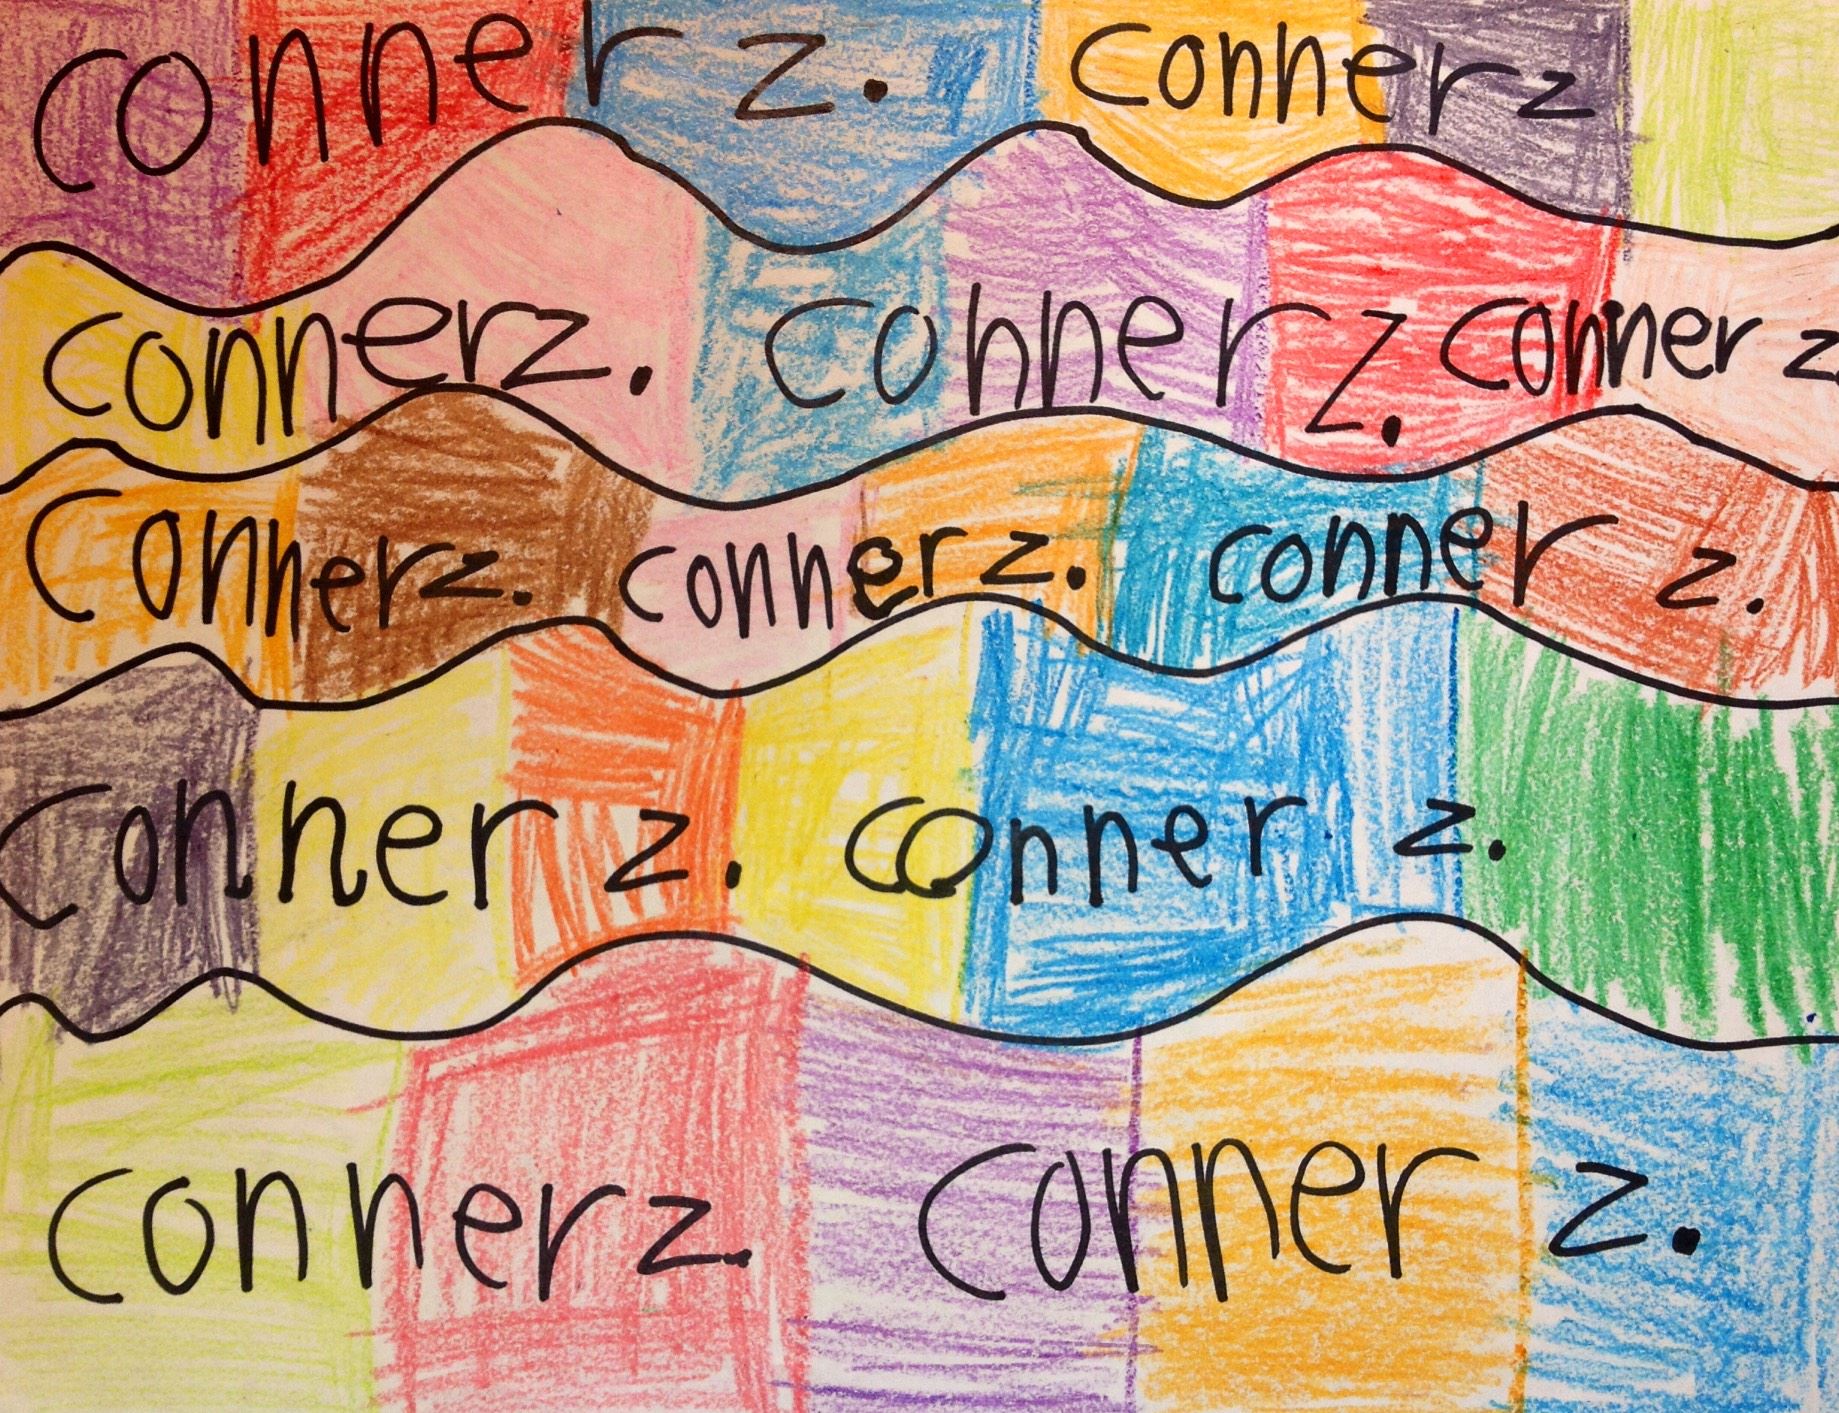 conner z. conner z
conner z. conner z. conner z.
conner z. conner z. conner z.
conner z. conner z.
conner z. conner z.